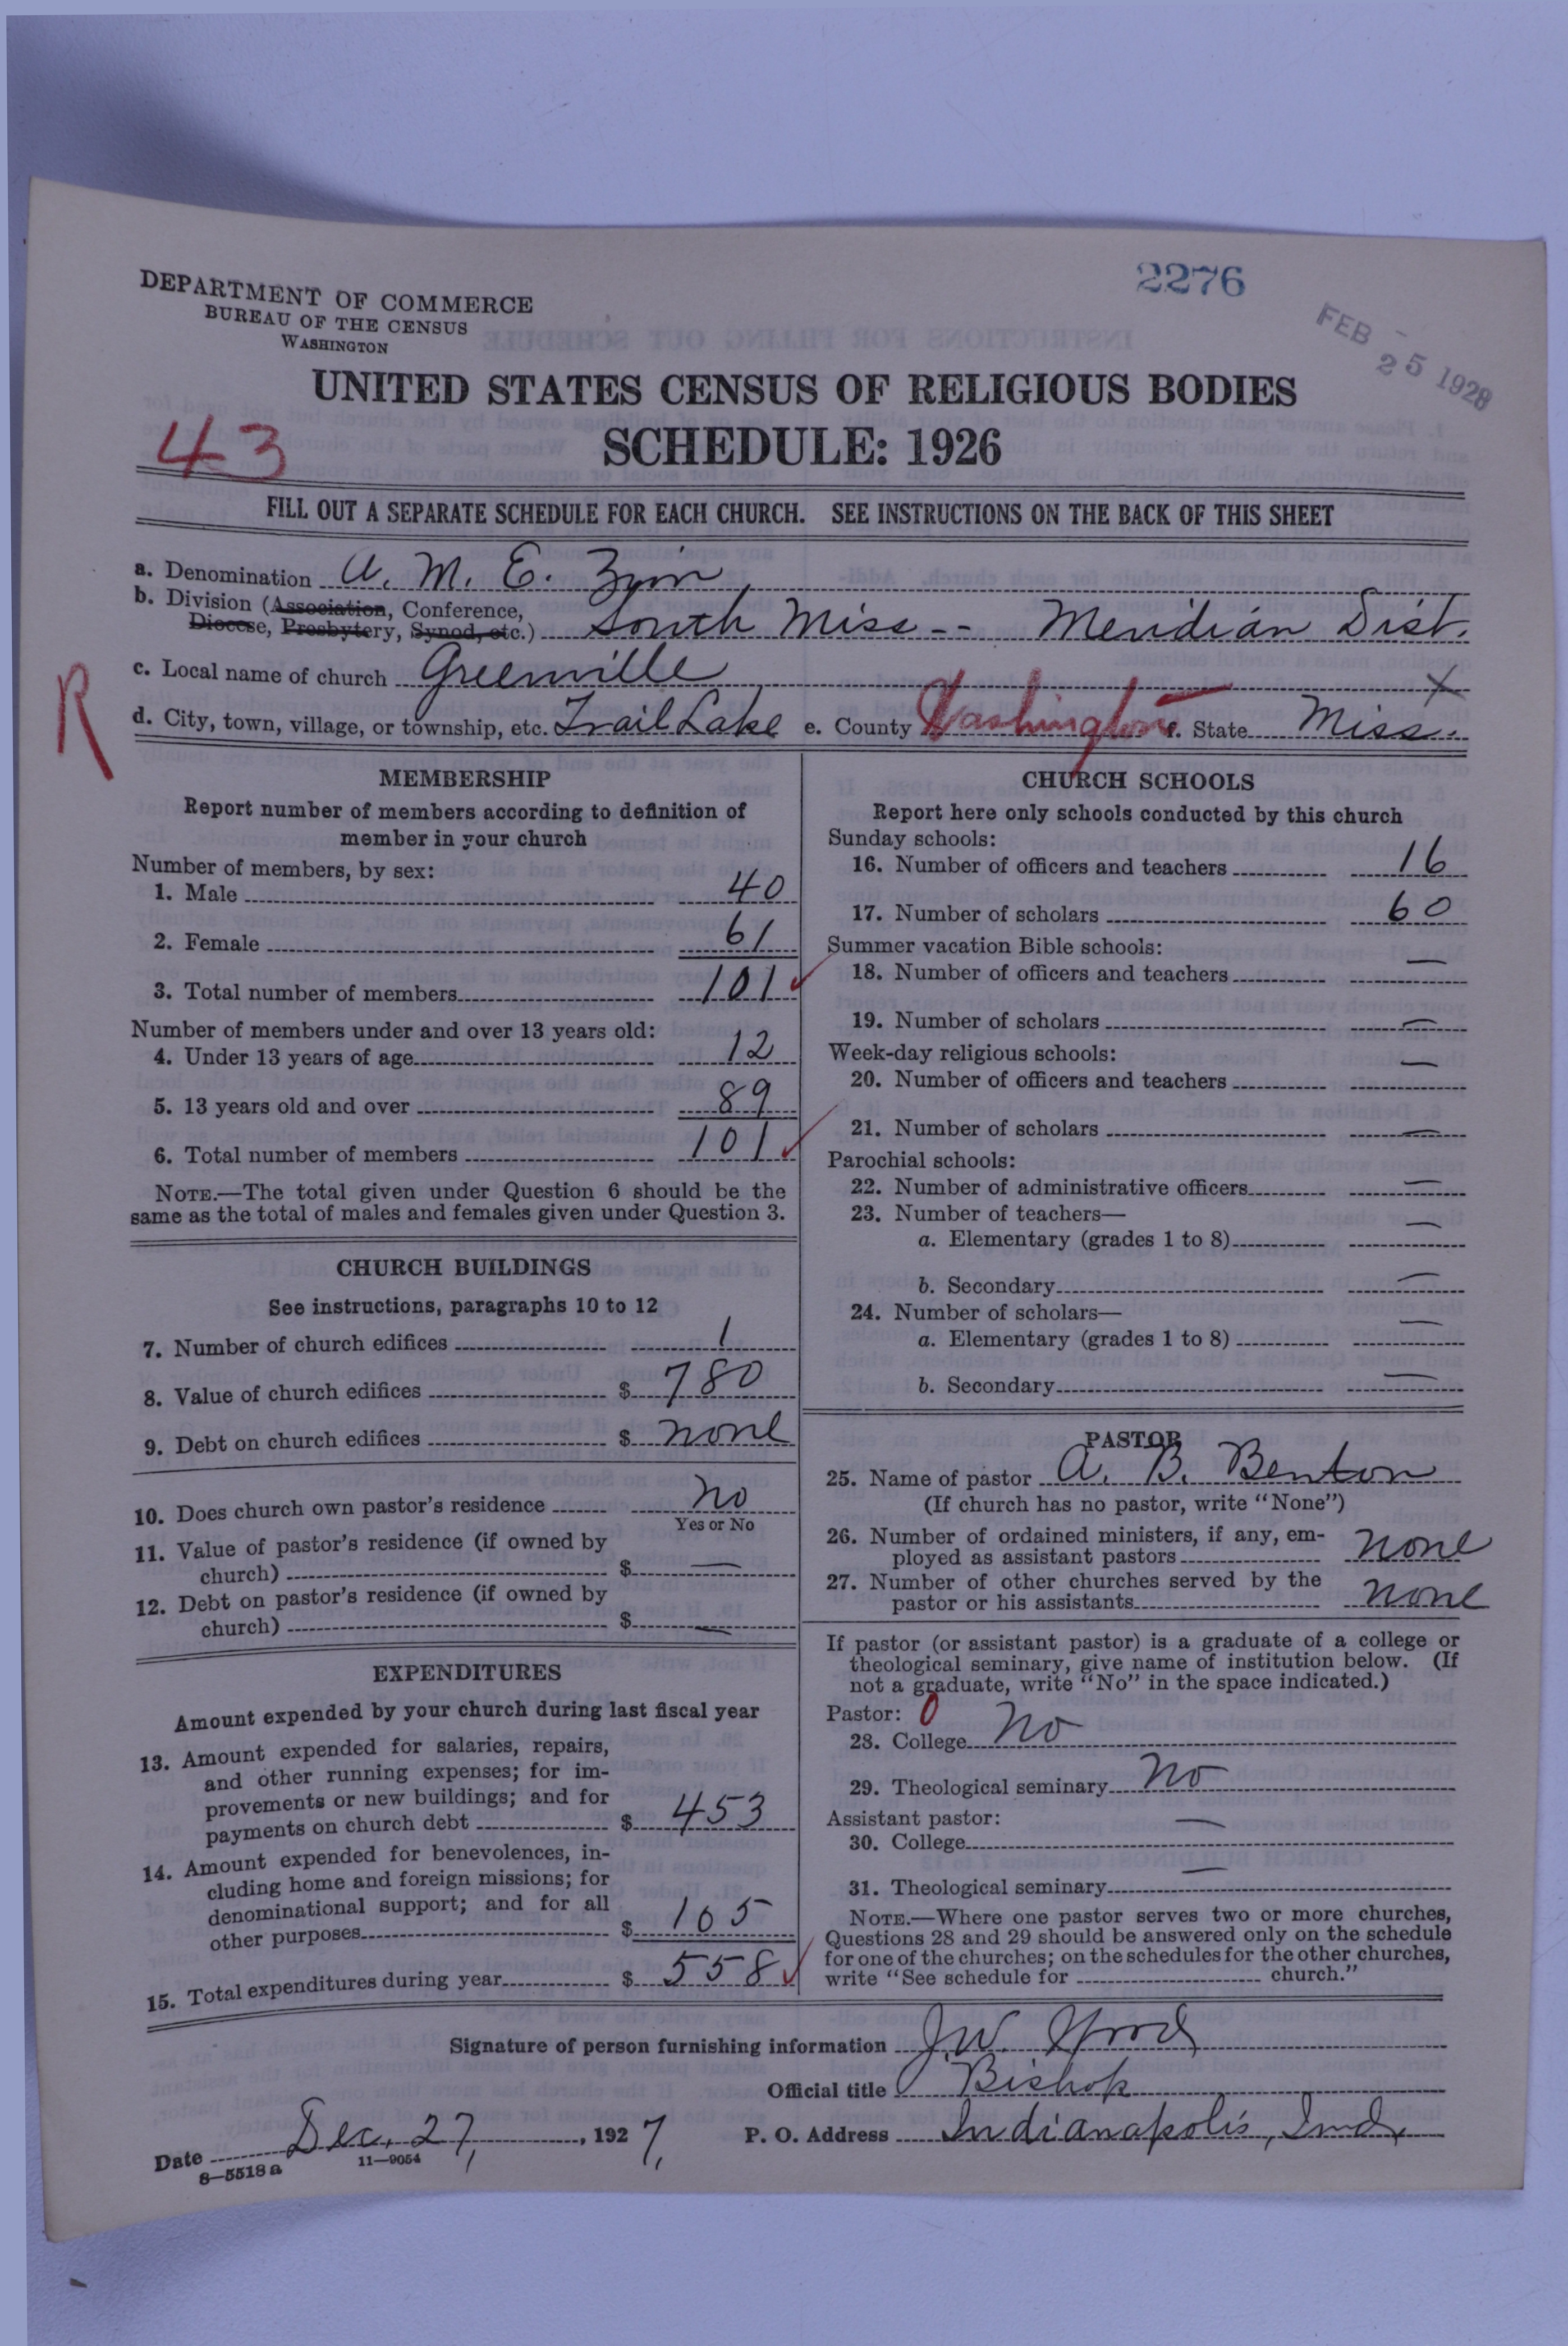 DEPARTMENT OF COMMERCE
BUREAU OF THE CENSUS
WASHINGTON
2276
FEB 25 1928
UNITED STATES CENSUS OF RELIGIOUS BODIES
SCHEDULE: 1926
43
FILL OUT A SEPARATE SCHEDULE FOR EACH CHURCH. SEE INSTRUCTIONS ON THE BACK OF THIS SHEET
a. Denomination A. M. E. Zion
b. Division (Association, Conference,
Diocese, Presbytery, Synod, etc.) South Miss -- Meridian Dist.
c. Local name of church Greenville X
R
d. City, town, village, or township, etc. Trail Lake e. County Washington f. State Miss.
MEMBERSHIP
Report number of members according to definition of
member in your church
Number of members, by sex:
1. Male 40
2. Female 61
3. Total number of members 101 ✓
Number of members under and over 13 years old:
4. Under 13 years of age 12
5. 13 years old and over 89
6. Total number of members 101 ✓
NOTE.—The total given under Question 6 should be the
same as the total of males and females given under Question 3.
CHURCH BUILDINGS
See instructions, paragraphs 10 to 12
7. Number of church edifices 1
8. Value of church edifices $ 780
9. Debt on church edifices $ none
10. Does church own pastor's residence no
Yes or No
11. Value of pastor's residence (if owned by
church) $ —
12. Debt on pastor's residence (if owned by
church) $ —
EXPENDITURES
Amount expended by your church during last fiscal year
13. Amount expended for salaries, repairs,
and other running expenses; for im-
provements or new buildings; and for
payments on church debt $ 453
14. Amount expended for benevolences, in-
cluding home and foreign missions; for
denominational support; and for all
other purposes $ 105
15. Total expenditures during year $ 558 ✓
CHURCH SCHOOLS
Report here only schools conducted by this church
Sunday schools:
16. Number of officers and teachers 16
17. Number of scholars 60
Summer vacation Bible schools:
18. Number of officers and teachers —
19. Number of scholars —
Week-day religious schools:
20. Number of officers and teachers —
21. Number of scholars —
Parochial schools:
22. Number of administrative officers —
23. Number of teachers—
a. Elementary (grades 1 to 8) —
b. Secondary —
24. Number of scholars—
a. Elementary (grades 1 to 8) —
b. Secondary —
PASTOR
25. Name of pastor A. B. Benton
(If church has no pastor, write "None")
26. Number of ordained ministers, if any, em-
ployed as assistant pastors none
27. Number of other churches served by the
pastor or his assistants none
If pastor (or assistant pastor) is a graduate of a college or
theological seminary, give name of institution below. (If
not a graduate, write "No" in the space indicated.)
Pastor: 0
28. College No
29. Theological seminary No
Assistant pastor:
30. College —
31. Theological seminary —
NOTE.—Where one pastor serves two or more churches,
Questions 28 and 29 should be answered only on the schedule
for one of the churches; on the schedules for the other churches,
write "See schedule for church."
Signature of person furnishing information J. W. Wood
Official title Bishop
Date Dec. 27, 1927, P. O. Address Indianapolis, Ind.
8—5518 a 11—9054